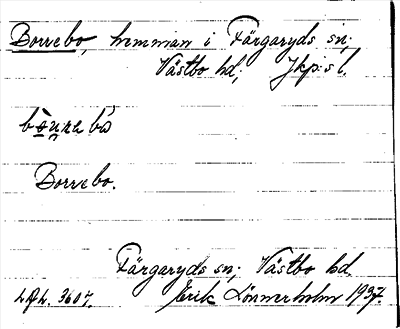 Borrebo, hemman i Färgaryds sn;
Västbo hd; Jkp:s l.
Borrebo.
Färgaryds sn; Västbo hd.
LAL. 3607. Erik Lönnerholm 1937.